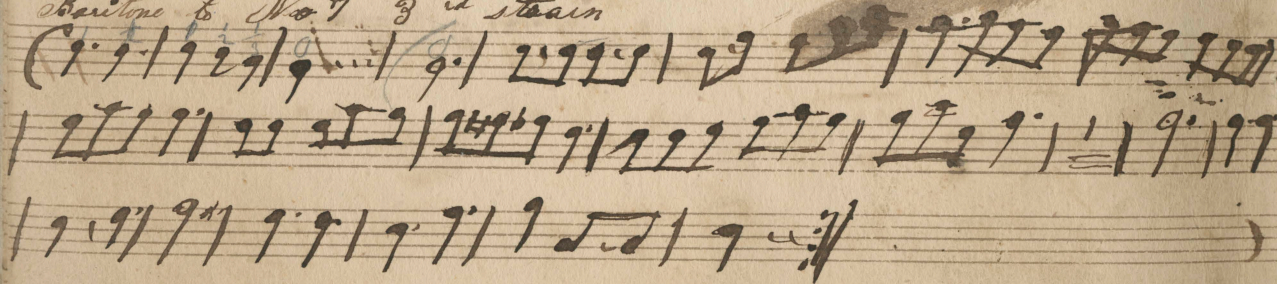 Baritone to No 7 3rd strain